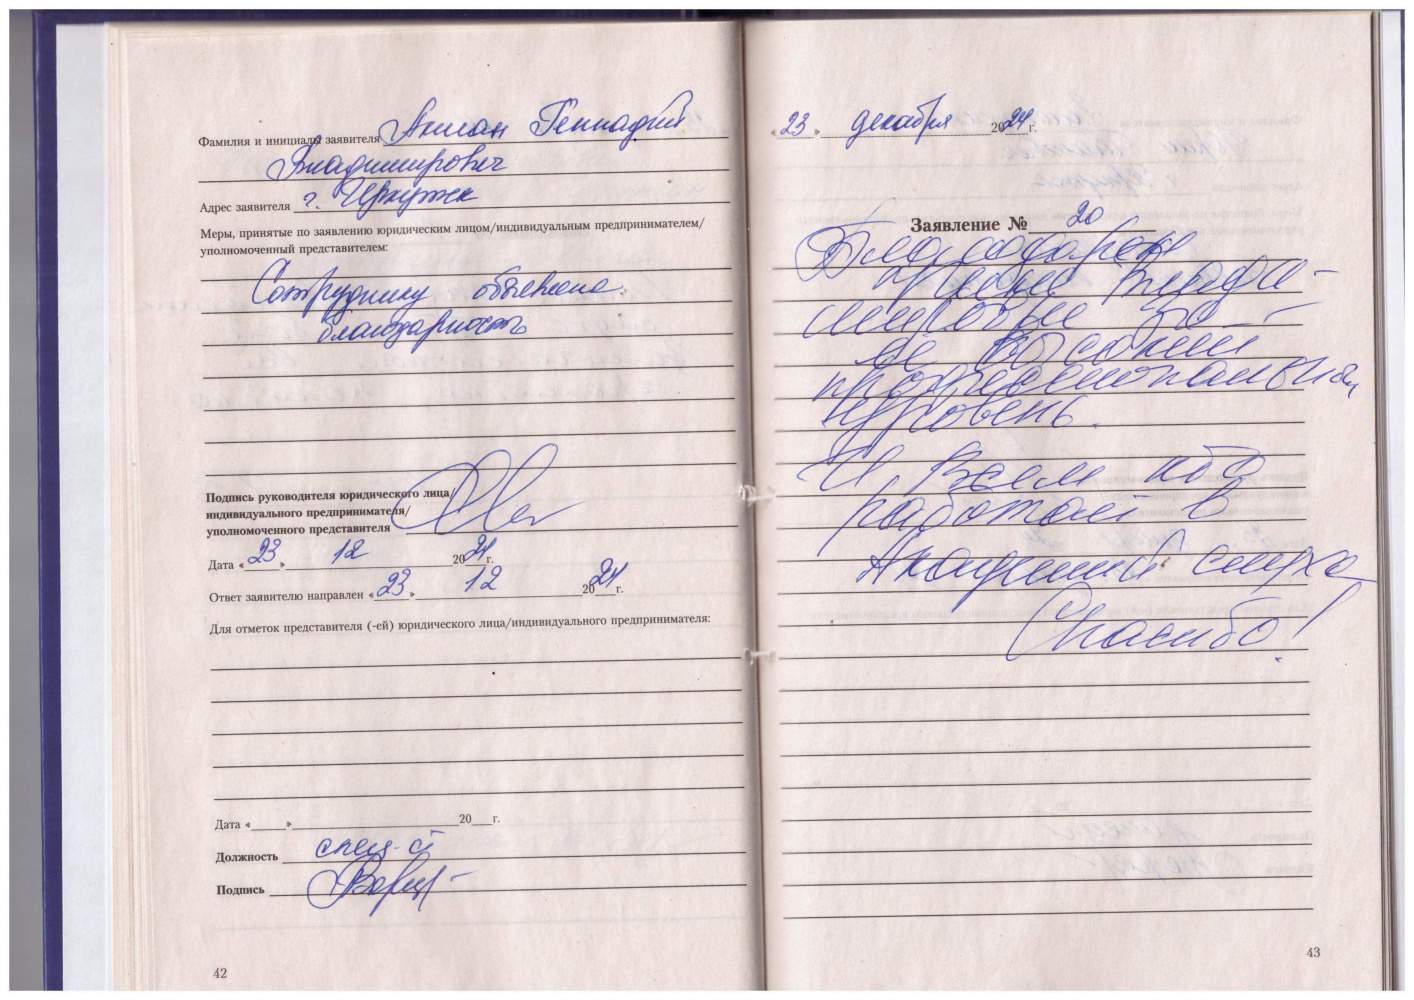 Фамилия и инициалы заявителя Геннадий
Владимирович
Адрес заявителя г. Иркутск
Меры, принятые по заявлению юридическим лицом/индивидуальным предпринимателем/
уполномоченный представителем:
Сотруднику объявлена
благодарность
Подпись руководителя юридического лица/
индивидуального предпринимателя/
уполномоченного представителя
Дата «23» 12 2024г.
Ответ заявителю направлен «23» 12 2024г.
Для отметок представителя (-ей) юридического лица/индивидуального предпринимателя:
Дата «____»____20___г.
Должность спец-т
Подпись
42
«23» декабря 2024г.
Заявление № 20
Благодарен
за
ее высокий
профессиональный
уровень.
И всем кто
работает в
Академии слуха
Спасибо!
43